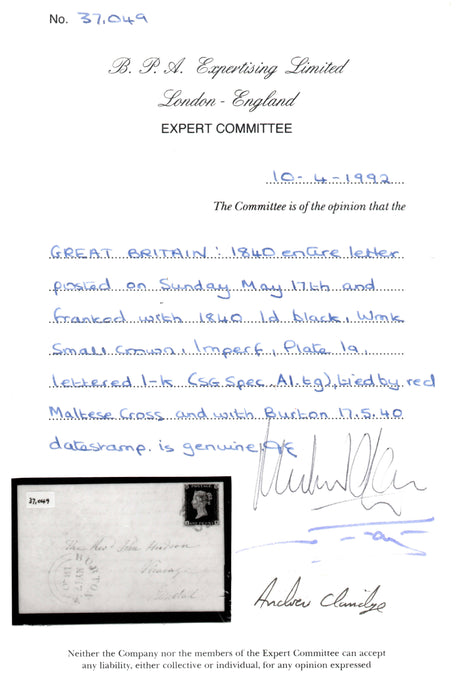 No. 37,049
B. P. A. Expertising Limited
London - England
EXPERT COMMITTEE
10-4-1992
The Committee is of the opinion that the
GREAT BRITAIN: 1840 entire letter
posted on Sunday May 17th and
franked with 1840 1d black, Wmk
Small crown, Imperf, Plate 1a,
lettered I-K (SG Spec A1.tg), tied by red
Maltese Cross and with Burton 17.5.40
datestamp. is genuine,
37,049
POSTAGE
ONE PENNY
The Revd John Hudson
Vicarage
Kendal
BURTON
MY 17
1840
Andrew Claridge
Neither the Company nor the members of the Expert Committee can accept
any liability, either collective or individual, for any opinion expressed